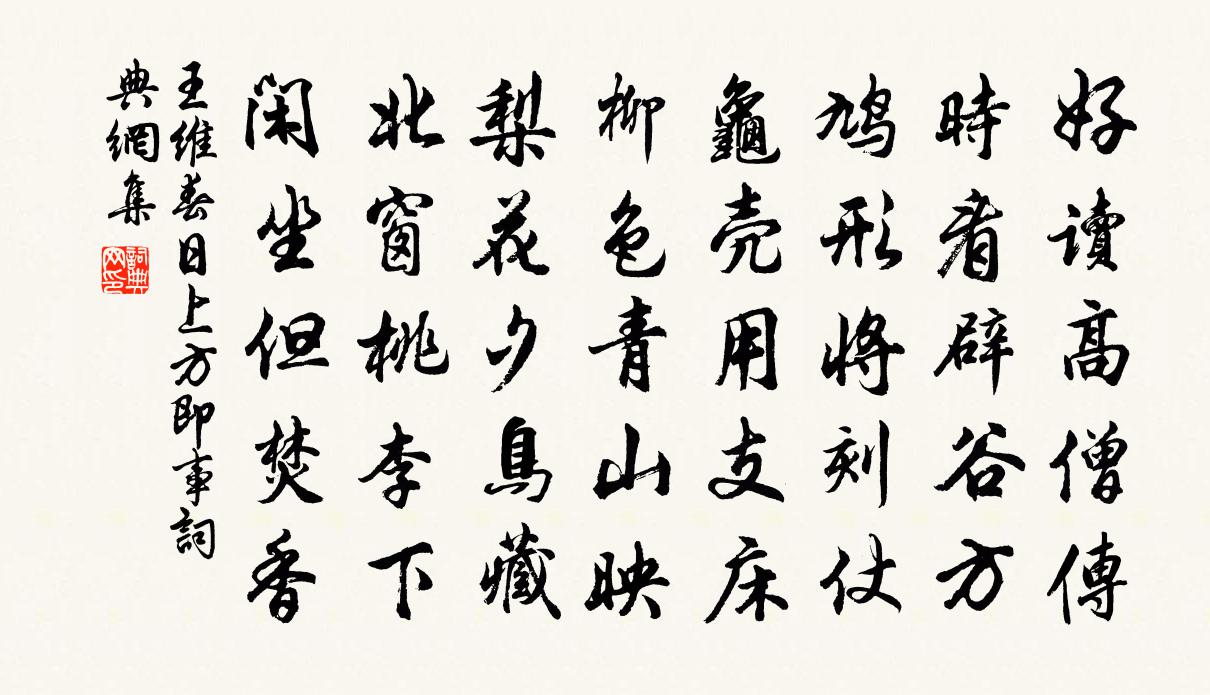 好讀高僧傳
時看辟谷方
鳩形將刻仗
龜壳用支床
柳色青山映
梨花夕鳥藏
北窗桃李下
閑坐但焚香
王維春日上方即事詞
典網集
詞典
网印